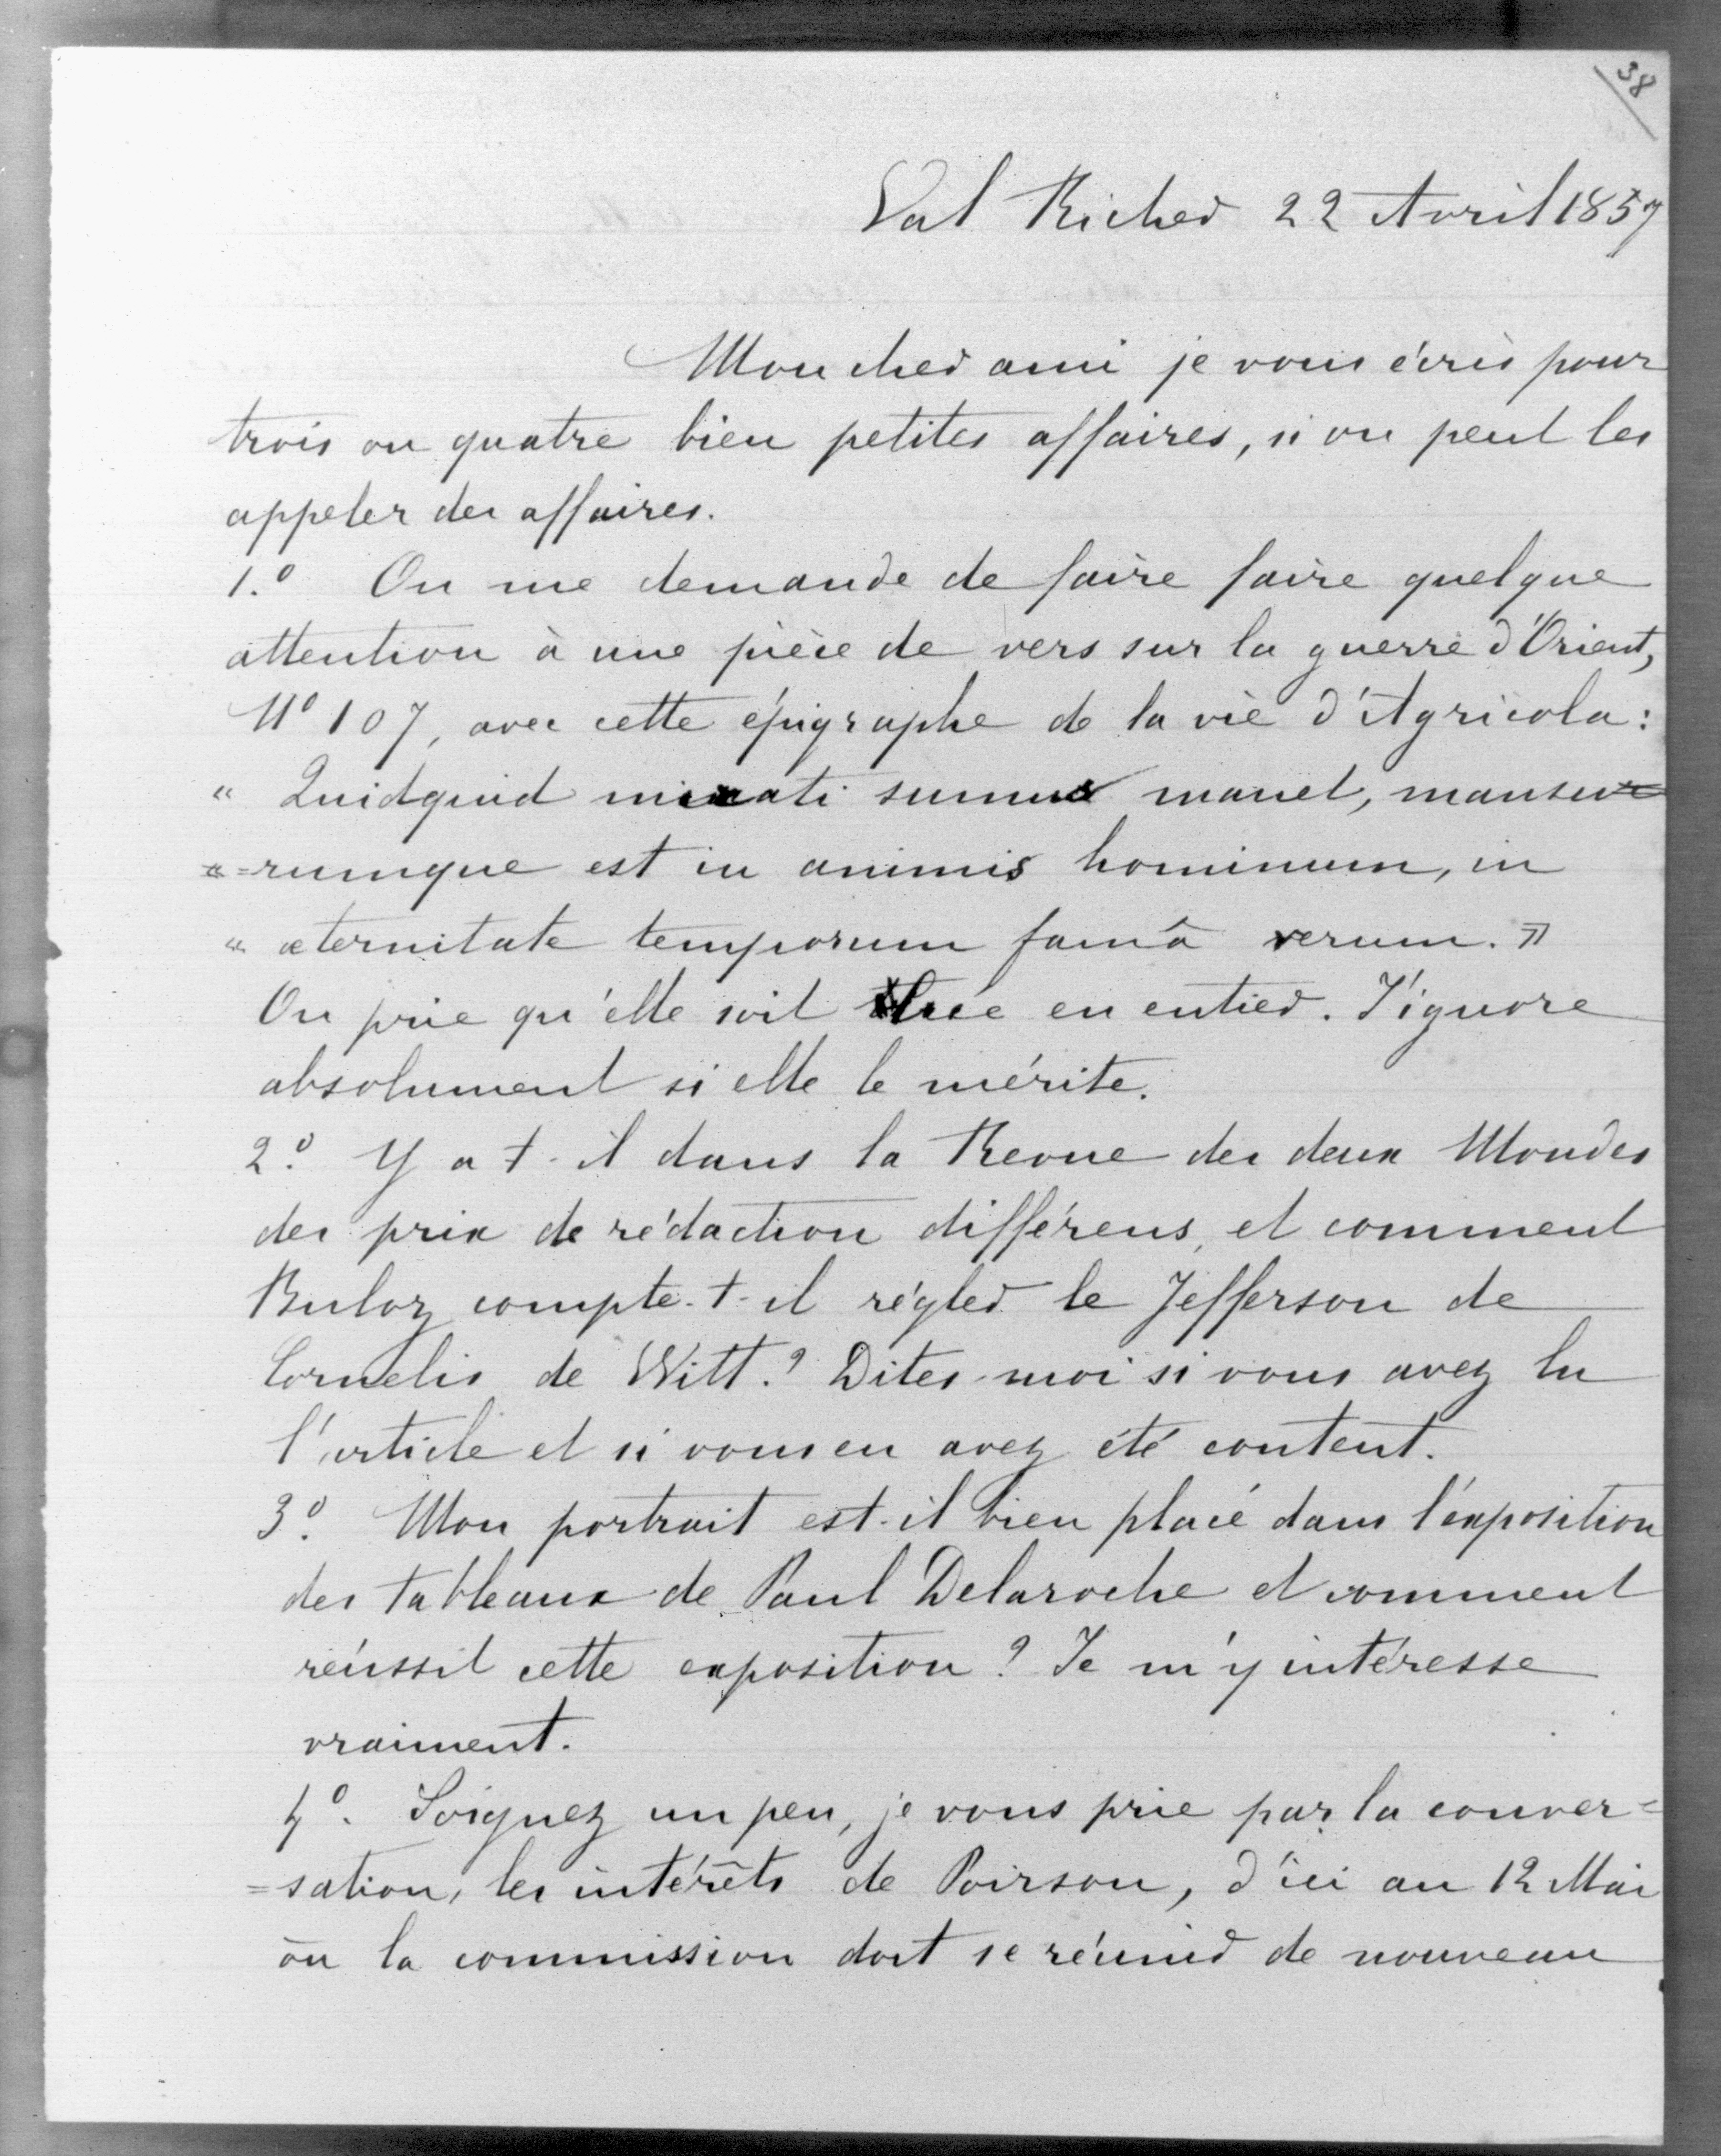 38
Val Richer 22 Avril 1857
Mon cher ami je vous écris pour
trois ou quatre bien petites affaires, si on peut les
appeler des affaires.
1.º On me demande de faire faire quelque
attention à une pièce de vers sur la guerre d'Orient,
Nº 107, avec cette épigraphe de la vie d'Agricola:
" Quidquid mirati sumus manet, mansu=
"=rumque est in animis hominum, in
" æternitate temporum famâ rerum. "
On prie qu'elle soit lue en entier. J'ignore
absolument si elle le mérite.
2º. Y a t-il dans la Revue des deux Mondes
des prix de rédaction différens, et comment
Buloz compte-t-il régler le Jefferson de
Cornelis de Witt? Dites-moi si vous avez lu
l'article et si vous en avez été content.
3º. Mon portrait est-il bien placé dans l'exposition
des tableaux de Paul Delaroche et comment
réussit cette exposition? Je m'y intéresse
vraiment.
4º. Soignez un peu, je vous prie par la conver=
=sation, les intérêts de Poirson, d'ici au 12 Mai
où la commission doit se réunir de nouveau